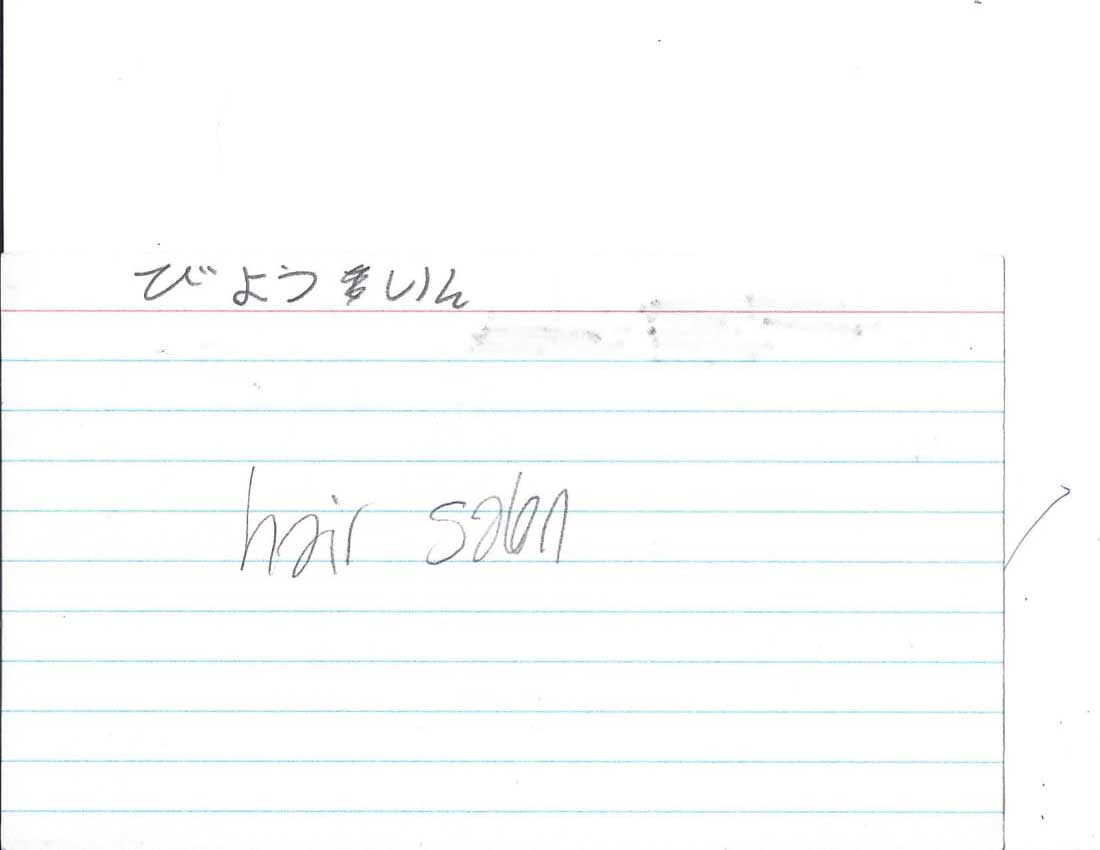 びよういん
hair salon